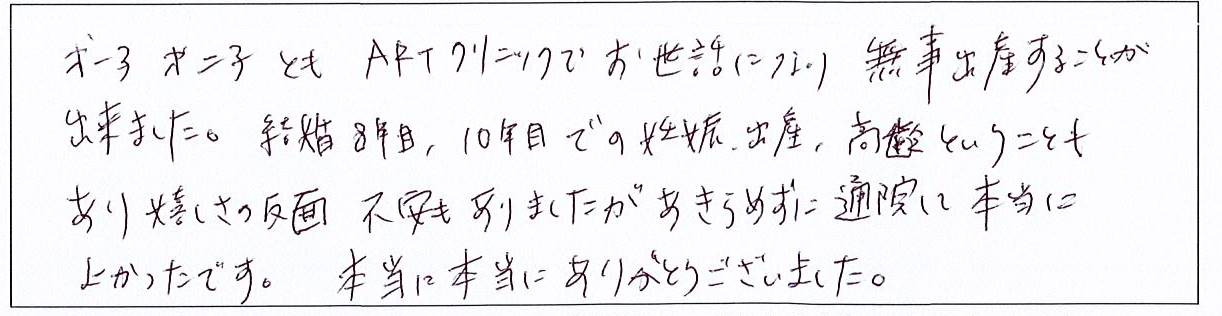 オ一子 オ二子 とも ARTクリニックで お世話になり 無事出産することが
出来ました。 結婚8年目, 10年目での妊娠、出産, 高齢ということも
あり嬉しさの反面 不安もありましたがあきらめずに通院して本当に
よかったです。 本当に本当にありがとうございました。